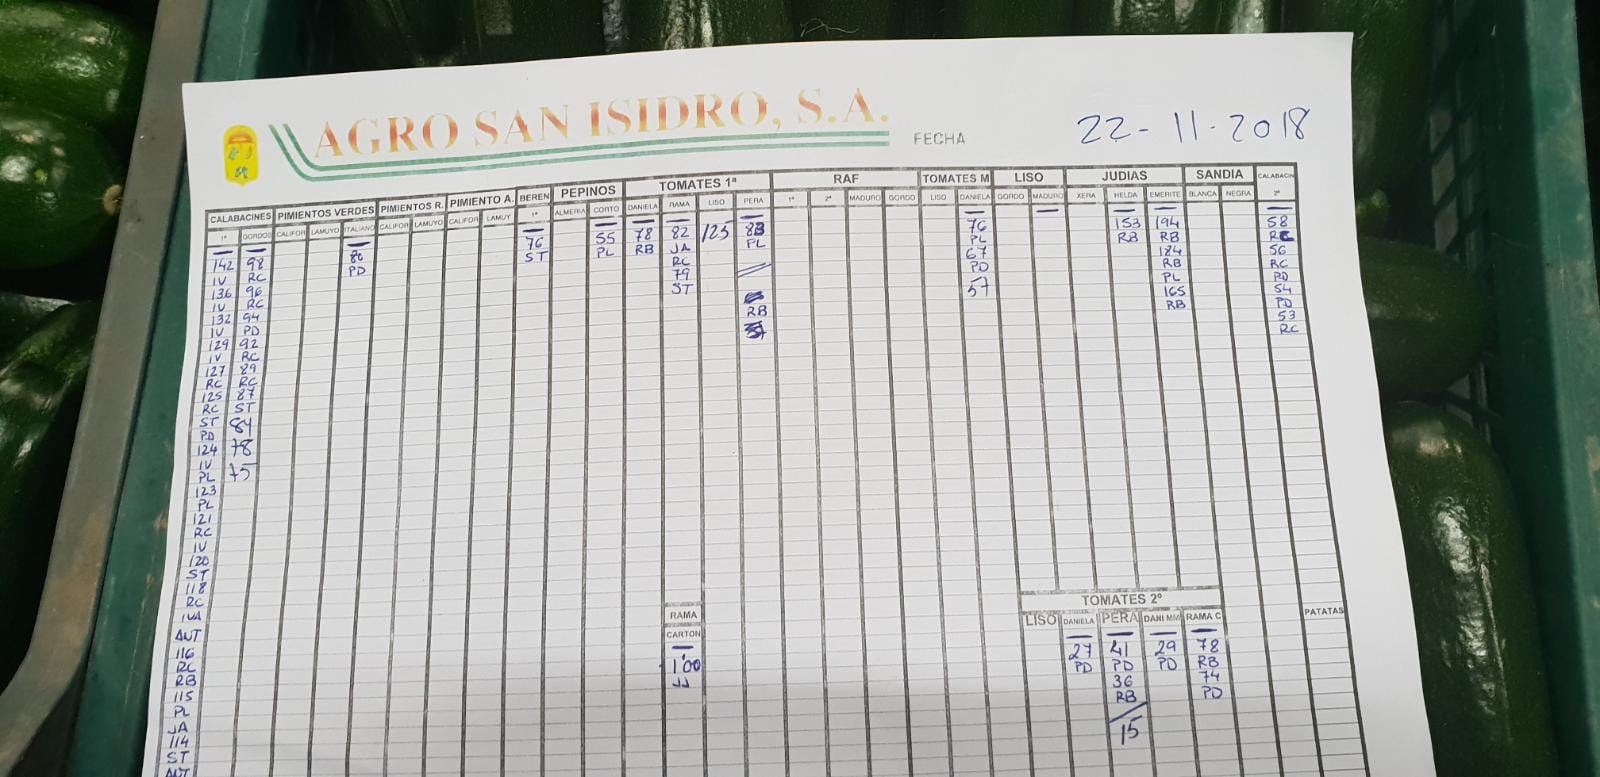 AGRO SAN ISIDRO, S.A.
FECHA 22-11-2018
CALABACINES PIMIENTOS VERDES PIMIENTOS R. PIMIENTO A. BEREN PEPINOS TOMATES 1ª RAF TOMATES M LISO JUDIAS SANDIA CALABACIN
1ª GORDOS CALIFOR LAMUYO ITALIANO CALIFOR LAMUYO CALIFOR LAMUY 1ª ALMERIA CORTO DANIELA RAMA LISO PERA 1ª 2ª MADURO GORDO LISO DANIELA GORDO MADURO XERA HELDA EMERITE BLANCA NEGRA 2ª
142 98 80 76 55 78 82 125 83 76 153 194 58
IV RC PD ST PL RB JA PL PL RB RB RC
136 96 RC 67 184 56
IV RC 79 PD RB RC
132 94 ST 57 PL PD
IV PD RB 165 54
129 92 RB PD
IV RC 53
127 89 RC
RC RC
125 87
RC ST
ST 84
PD
124 78
IV
PL 75
123
PL
121
RC
IV
120
ST
118
RC
IVA
ANT
116
RC
RB
115
PL
JA
114
ST
ANT
RAMA
CARTON
1'00
JJ
TOMATES 2º
LISO DANIELA PERA DANI MM RAMA C
27 41 29 78
PD PD PD RB
36 74
RB PD
15
PATATAS